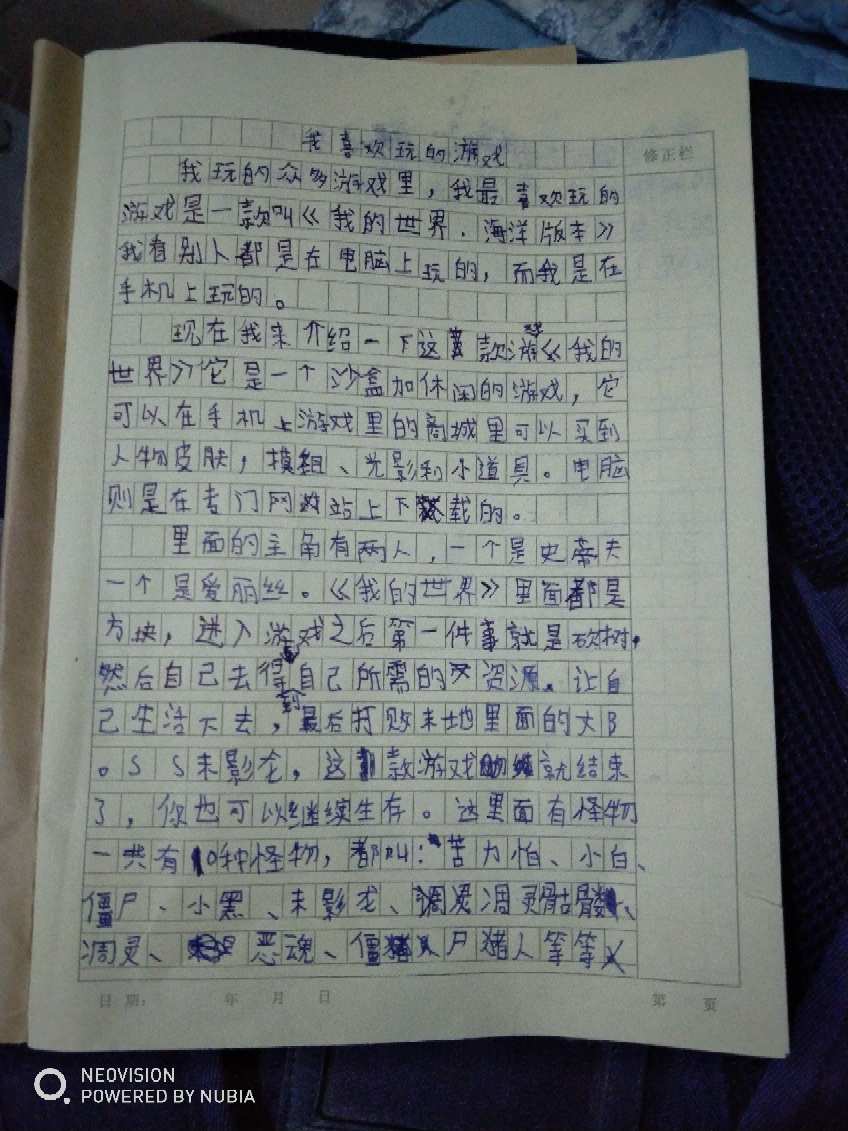 我喜欢玩的游戏
修正栏
我玩的众多游戏里，我最喜欢玩的
游戏是一款叫《我的世界．海洋版本》
我看别人都是在电脑上玩的，而我是在
手机上玩的。
现在我来介绍一下这款游戏《我的
世界》它是一个沙盒加休闲的游戏，它
可以在手机上游戏里的商城里可以买到
人物皮肤，模组、光影和小道具。电脑
则是在专门网站上下载的。
里面的主角有两人，一个是史蒂夫
一个是爱丽丝。《我的世界》里面都是
方块，进入游戏之后第一件事就是砍树，
然后自己去得到自己所需的资源。让自
己生活下去，最后打败末地里面的大B
。S S末影龙，这款游戏就结束
了，你也可以继续生存。这里面有怪物
一共有10种怪物，都叫：苦力怕、小白、
僵尸、小黑、末影龙、凋灵骷髅、
凋灵、恶魂、僵尸猪人等等
日 期： 年 月 日
第 页
NEOVISION
POWERED BY NUBIA